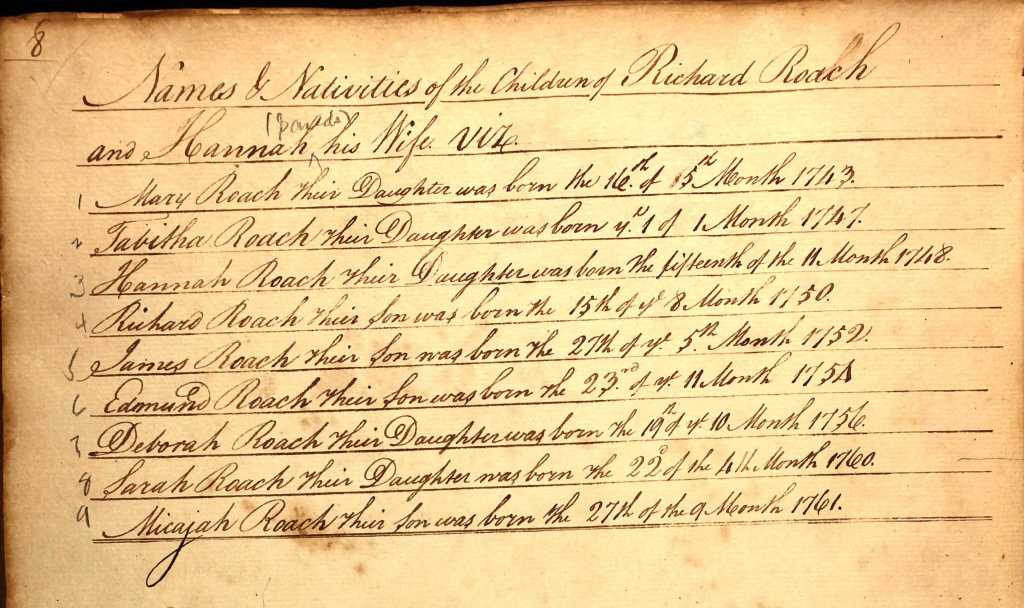 8
Names & Nativities of the Children of Richard Roach
and Hannah his Wife. Viz.
1 Mary Roach their Daughter was born the 16.th of 5th Month 1743.
2 Tabitha Roach their Daughter was born ye. 1 of 1 Month 1747.
3 Hannah Roach their Daughter was born the fifteenth of the 11 Month 1748.
4 Richard Roach their Son was born the 15th of ye 8 Month 1750.
5 James Roach their Son was born the 27th of ye. 5.th Month 1752.
6 Edmund Roach their Son was born the 23.rd of ye. 11 Month 1754
7 Deborah Roach their Daughter was born the 19th of ye 10 Month 1756.
8 Sarah Roach their Daughter was born the 22d of the 4th Month 1760.
9 Micajah Roach their Son was born the 27th of the 9 Month 1761.